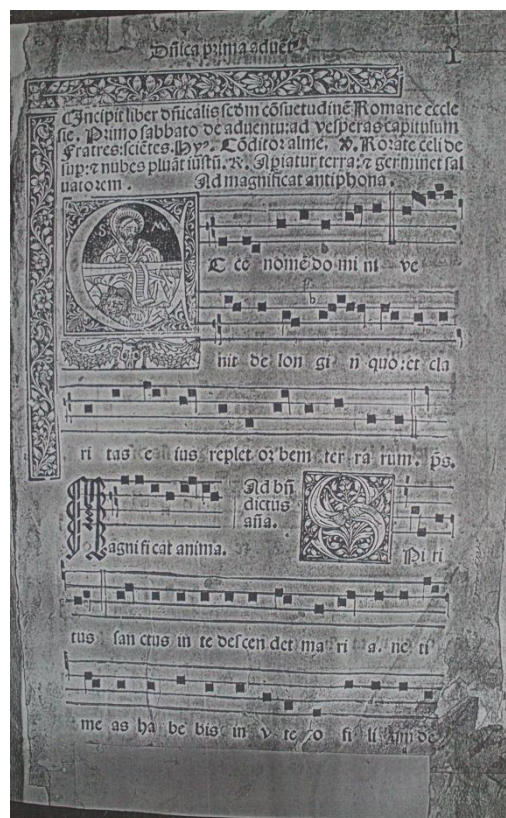 Dñica prima aduẽt⁹ I
Incipit liber dñicalis scdm cõsuetudinẽ Romane eccle
sie. Primo sabbato de aduentu: ad vesperas capitulum
Fratres: sciẽtes. Hyᵒ. Cõditor alme. ℣. Rorate celi de
sup: ⁊ nubes pluãt iustũ. ℟. Apiatur terra: ⁊ germinet sal
uatorem. Ad magnificat antiphona.
E cce nomẽ do mi ni ve
nit de lon gi n quo: et cla
ri tas e ius replet or bem ter ra rum. p̃s.
Magnificat anima.
Ad bñ
dictus
aña.
SPi ri
tus san ctus in te descen det ma ri a. ne ti
me as ha be bis in v te ro fi li um de